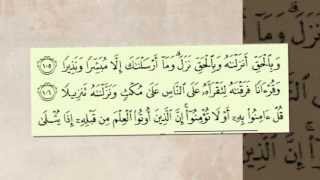 وَبِٱلْحَقِّ أَنزَلْنَٰهُ وَبِٱلْحَقِّ نَزَلَ ۗ وَمَآ أَرْسَلْنَٰكَ إِلَّا مُبَشِّرًا وَنَذِيرًا ١٠٥
وَقُرْءَانًا فَرَقْنَٰهُ لِتَقْرَأَهُۥ عَلَى ٱلنَّاسِ عَلَىٰ مُكْثٍ وَنَزَّلْنَٰهُ تَنزِيلًا ١٠٦
قُلْ ءَامِنُوا۟ بِهِۦٓ أَوْ لَا تُؤْمِنُوٓا۟ ۚ إِنَّ ٱلَّذِينَ أُوتُوا۟ ٱلْعِلْمَ مِن قَبْلِهِۦٓ إِذَا يُتْلَىٰ